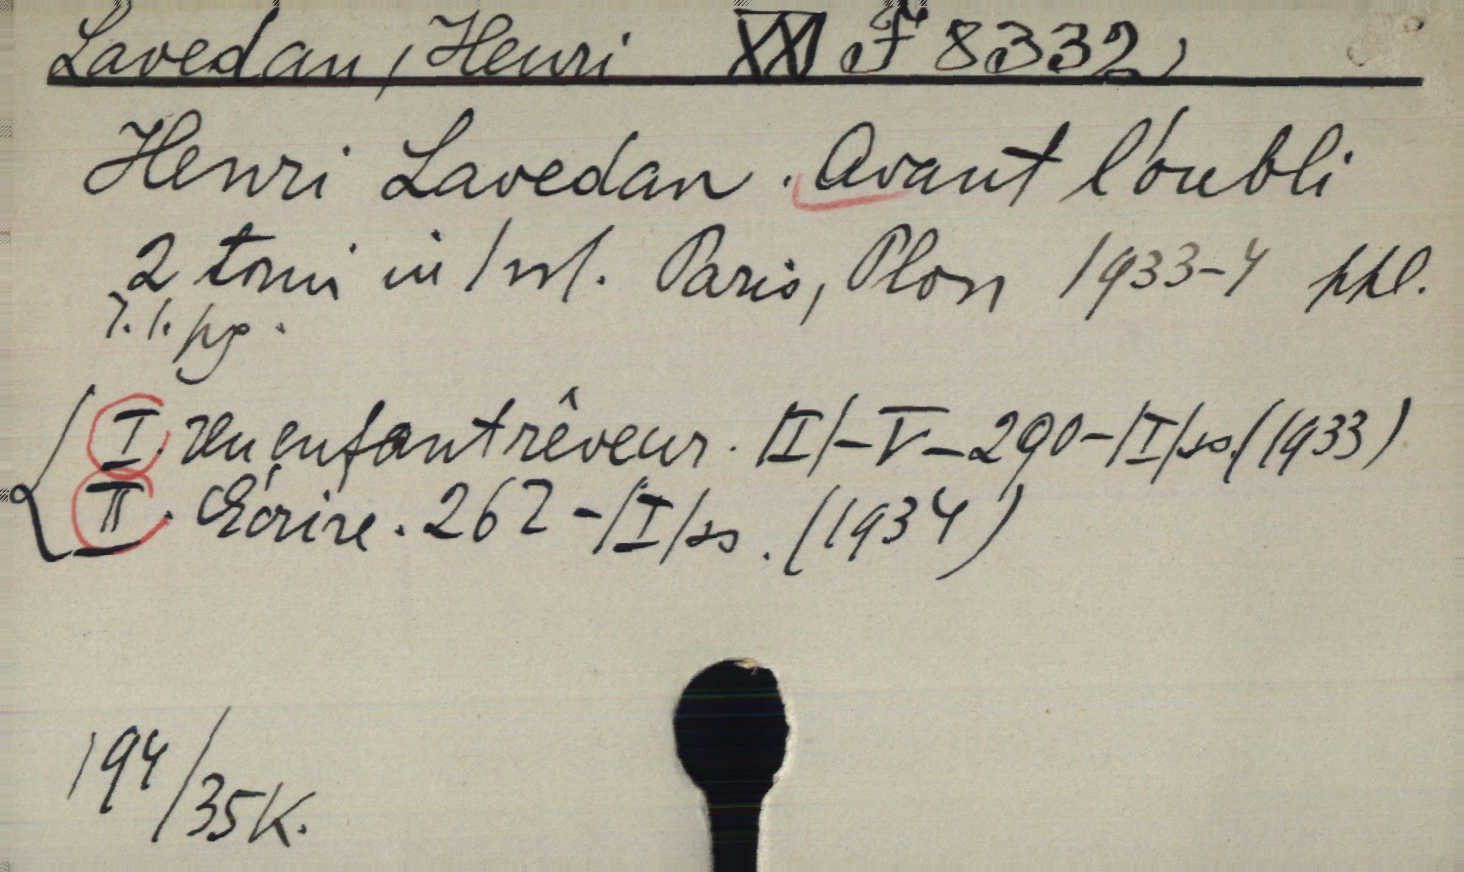 Lavedan, Henri XXI F 8332,
Henri Lavedan. Avant l'oubli
2 tomi in 1 vol. Paris, Plon 1933-4 ppl.
7. l. pg.
I. Un enfant rêveur. /II/-V-290-/I/ss. (1933)
II. Écrire. 262-/I/ss. (1934)
194/35K.